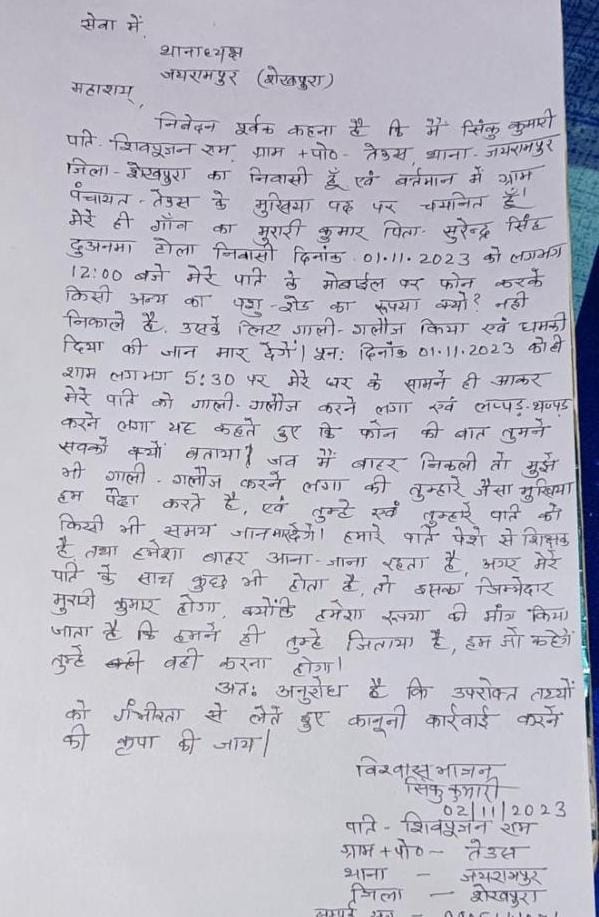 सेवा में,
थानाध्यक्ष
जयरामपुर (शेखपुरा)
महाशय,
निवेदन पूर्वक कहना है कि मैं सिंकु कुमारी
पति- शिवपूजन राम, ग्राम +पो०- तेउस, थाना- जयरामपुर
जिला- शेखपुरा का निवासी हूँ एवं वर्तमान में ग्राम
पंचायत - तेउस के मुखिया पद पर चयनित हूँ।
मेरे ही गाँव का मुरारी कुमार पिता- सुरेन्द्र सिंह
दुअनमा टोला निवासी दिनांक 01.11.2023 को लगभग
12:00 बजे मेरे पति के मोबाईल पर फोन करके
किसी अन्य का पशु-शेड का रूपया क्यों? नही
निकाले है, उसके लिए गाली-गलौज किया एवं धमकी
दिया की जान मार देगें। पुन: दिनांक 01.11.2023 को ही
शाम लगभग 5:30 पर मेरे घर के सामने ही आकर
मेरे पति को गाली-गलौज करने लगा एवं लप्पड़-थप्पड़
करने लगा यह कहते हुए कि फोन की बात तुमने
सबको क्यों बताया? जब मैं बाहर निकली तो मुझे
भी गाली-गलौज करने लगा की तुम्हारे जैसा मुखिया
हम पैदा करते है, एवं तुम्हे एवं तुम्हारे पति को
किसी भी समय जान मार देगें। हमारे पति पेशे से शिक्षक
है तथा हमेशा बाहर आना-जाना रहता है, अगर मेरे
पति के साथ कुछ भी होता है, तो इसका जिम्मेदार
मुरारी कुमार होगा, क्योंकि हमेशा रूपया की माँग किया
जाता है कि हमने ही तुम्हे जिताया है, हम जो कहेगें
तुम्हे वही करना होगा।
अत: अनुरोध है कि उपरोक्त तथ्यों
को गंभीरता से लेते हुए कानूनी कार्रवाई करने
की कृपा की जाय।
विश्वासभाजन
सिंकु कुमारी
02/11/2023
पति - शिवपूजन राम
ग्राम +पो० - तेउस
थाना - जयरामपुर
जिला - शेखपुरा